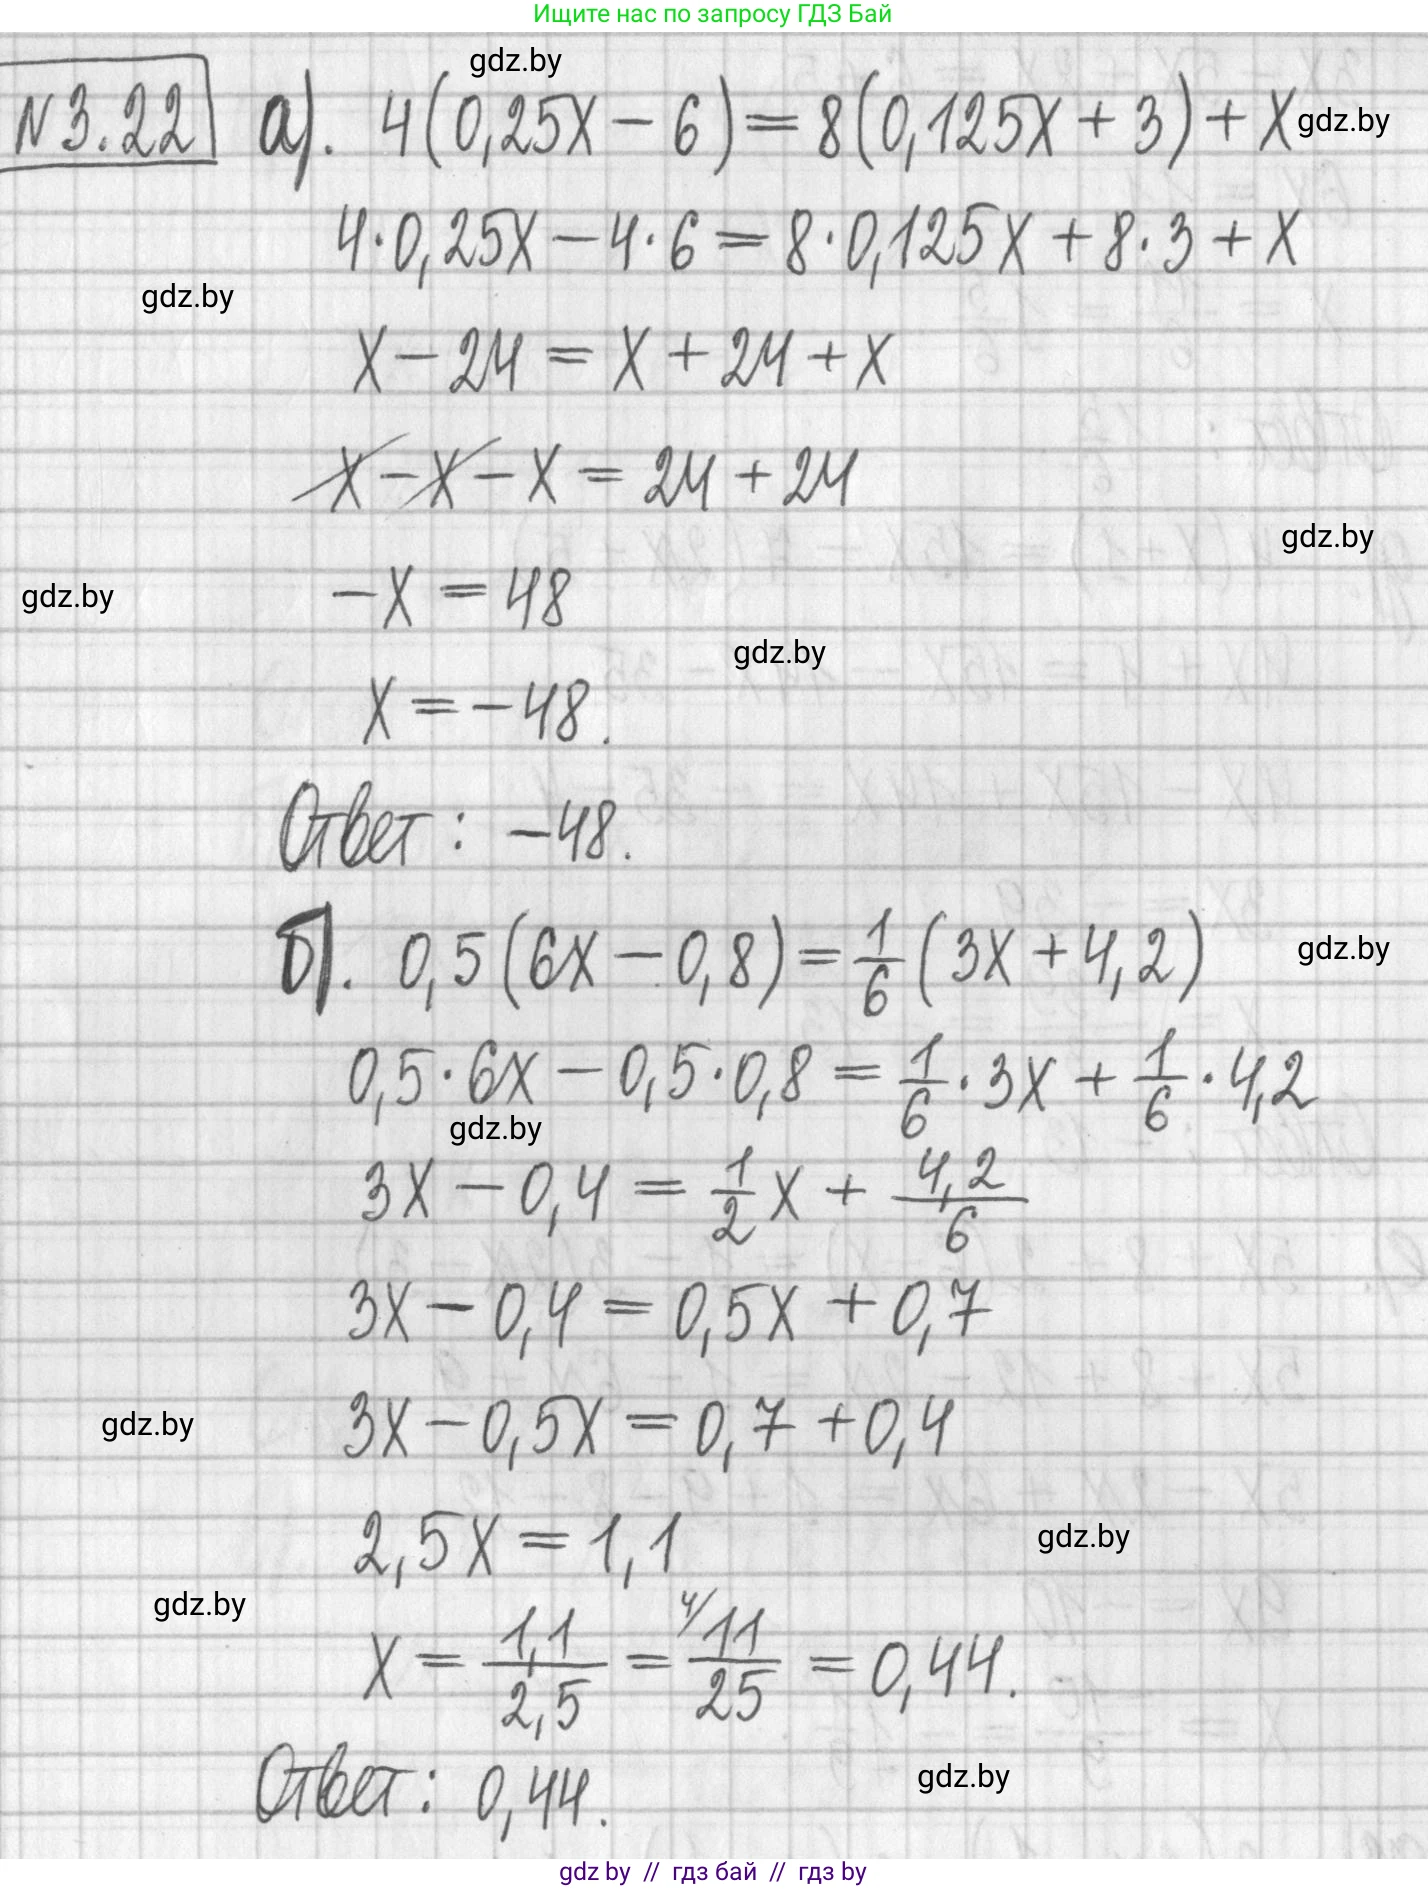 Ищите нас по запросу ГДЗ Бай
gdz.by
N 3.22 а). 4(0,25x − 6) = 8(0,125x + 3) + x
gdz.by
4·0,25x − 4·6 = 8·0,125x + 8·3 + x
gdz.by
x − 24 = x + 24 + x
x − x − x = 24 + 24
gdz.by
−x = 48
gdz.by
gdz.by
x = −48.
Ответ: −48.
б). 0,5(6x − 0,8) = 1/6 (3x + 4,2)
gdz.by
0,5·6x − 0,5·0,8 = 1/6 · 3x + 1/6 · 4,2
gdz.by
3x − 0,4 = 1/2 x + 4,2/6
3x − 0,4 = 0,5x + 0,7
3x − 0,5x = 0,7 + 0,4
gdz.by
2,5x = 1,1
gdz.by
gdz.by
x = 1,1/2,5 = 4/ 11/25 = 0,44.
Ответ: 0,44.
gdz.by
gdz by // гдз бай // гдз by